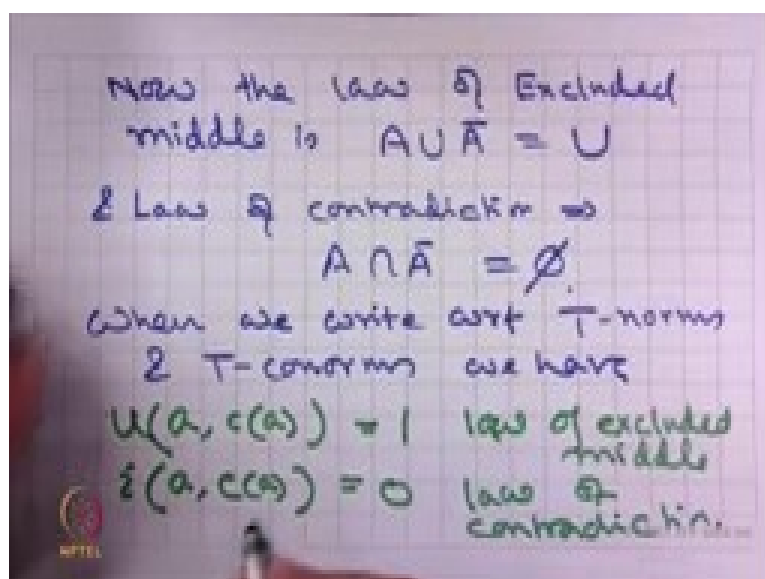 Now the law of Excluded
middle is A ∪ Ā = U
& Law of contradiction is
A ∩ Ā = ∅.
When we write wrt T-norms
& T-conorms we have
u(a, c(a)) = 1 law of excluded middle
i(a, c(a)) = 0 law of contradiction.
NPTEL